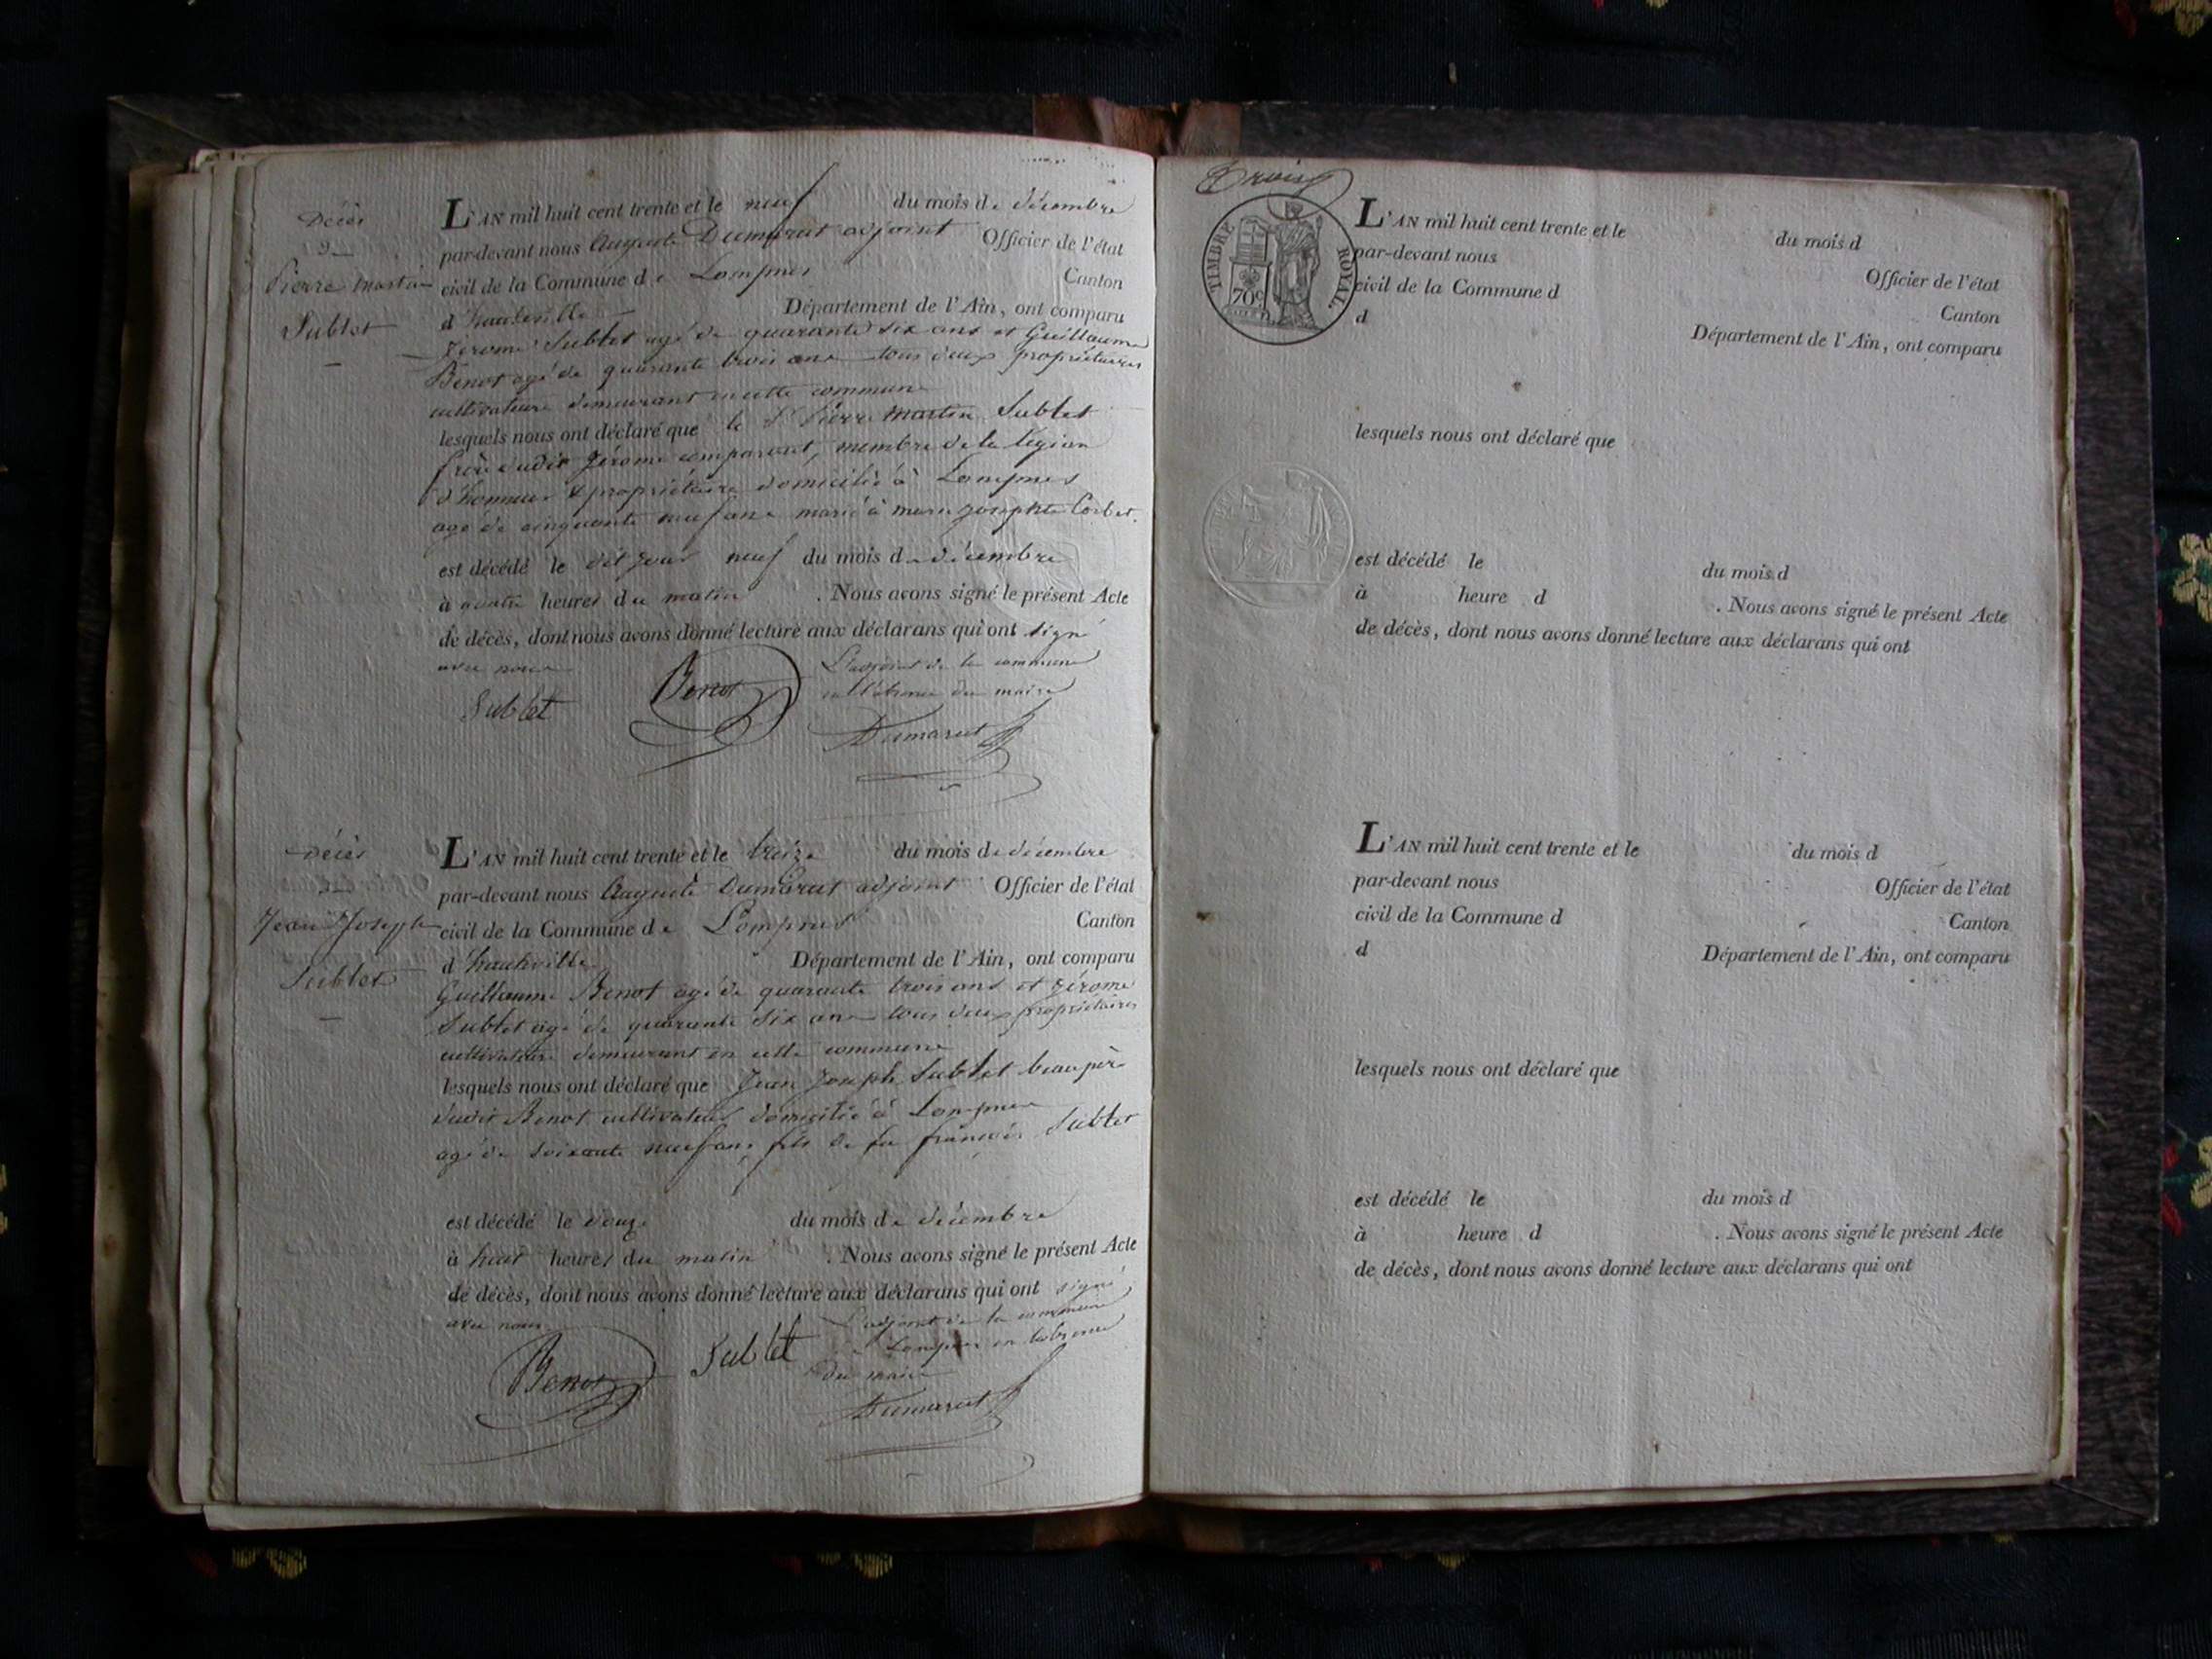 Décès
de
Pierre Martin
Sublet
L'AN mil huit cent trente et le neuf du mois de décembre
par-devant nous Auguste Dumarut adjoint Officier de l'état
civil de la Commune de Lompnes Canton
d'hauteville Département de l'Ain, ont comparu
Jérome Sublet agé de quarante six ans et Guillaume
Benot agé de quarante trois ans tous deux propriétaires
cultivateurs demeurant en cette commune
lesquels nous ont déclaré que le Sr Pierre Martin Sublet
frère dudit Jérome comparant, membre de la légion
d'honneur & propriétaire domicilié à Lompnes
agé de cinquante neuf ans marié à marie josephte Corbet.
est décédé le dit jour neuf du mois de décembre
à quatre heures du matin . Nous avons signé le présent Acte
de décès, dont nous avons donné lecture aux déclarans qui ont signé
avec nous
L'adjoint de la commune
en l'absence du maire
Sublet Benot Dumarut
Décès
de
Jean Joseph
Sublet
L'AN mil huit cent trente et le treize du mois de décembre
par-devant nous Auguste Dumarut adjoint Officier de l'état
civil de la Commune de Lompnes Canton
d'hauteville Département de l'Ain, ont comparu
Guillaume Benot agé de quarante trois ans et Jérome
Sublet agé de quarante six ans tous deux propriétaires
cultivateurs demeurant en cette commune
lesquels nous ont déclaré que Jean Joseph Sublet beau père
dudit Benot cultivateur domicilié à Lompnes
agé de soixante neuf ans fils de fu françois Sublet
est décédé le douze du mois de décembre
à huit heures du matin . Nous avons signé le présent Acte
de décès, dont nous avons donné lecture aux déclarans qui ont signé
avec nous
L'adjoint de la commune
de Lompnes en l'absence
du maire
Benot Sublet Dumarut
Trois
TIMBRE ROYAL.
70c
L'AN mil huit cent trente et le du mois d
par-devant nous Officier de l'état
civil de la Commune d Canton
d Département de l'Ain, ont comparu
lesquels nous ont déclaré que
est décédé le du mois d
à heure d . Nous avons signé le présent Acte
de décès, dont nous avons donné lecture aux déclarans qui ont
L'AN mil huit cent trente et le du mois d
par-devant nous Officier de l'état
civil de la Commune d Canton
d Département de l'Ain, ont comparu
lesquels nous ont déclaré que
est décédé le du mois d
à heure d . Nous avons signé le présent Acte
de décès, dont nous avons donné lecture aux déclarans qui ont